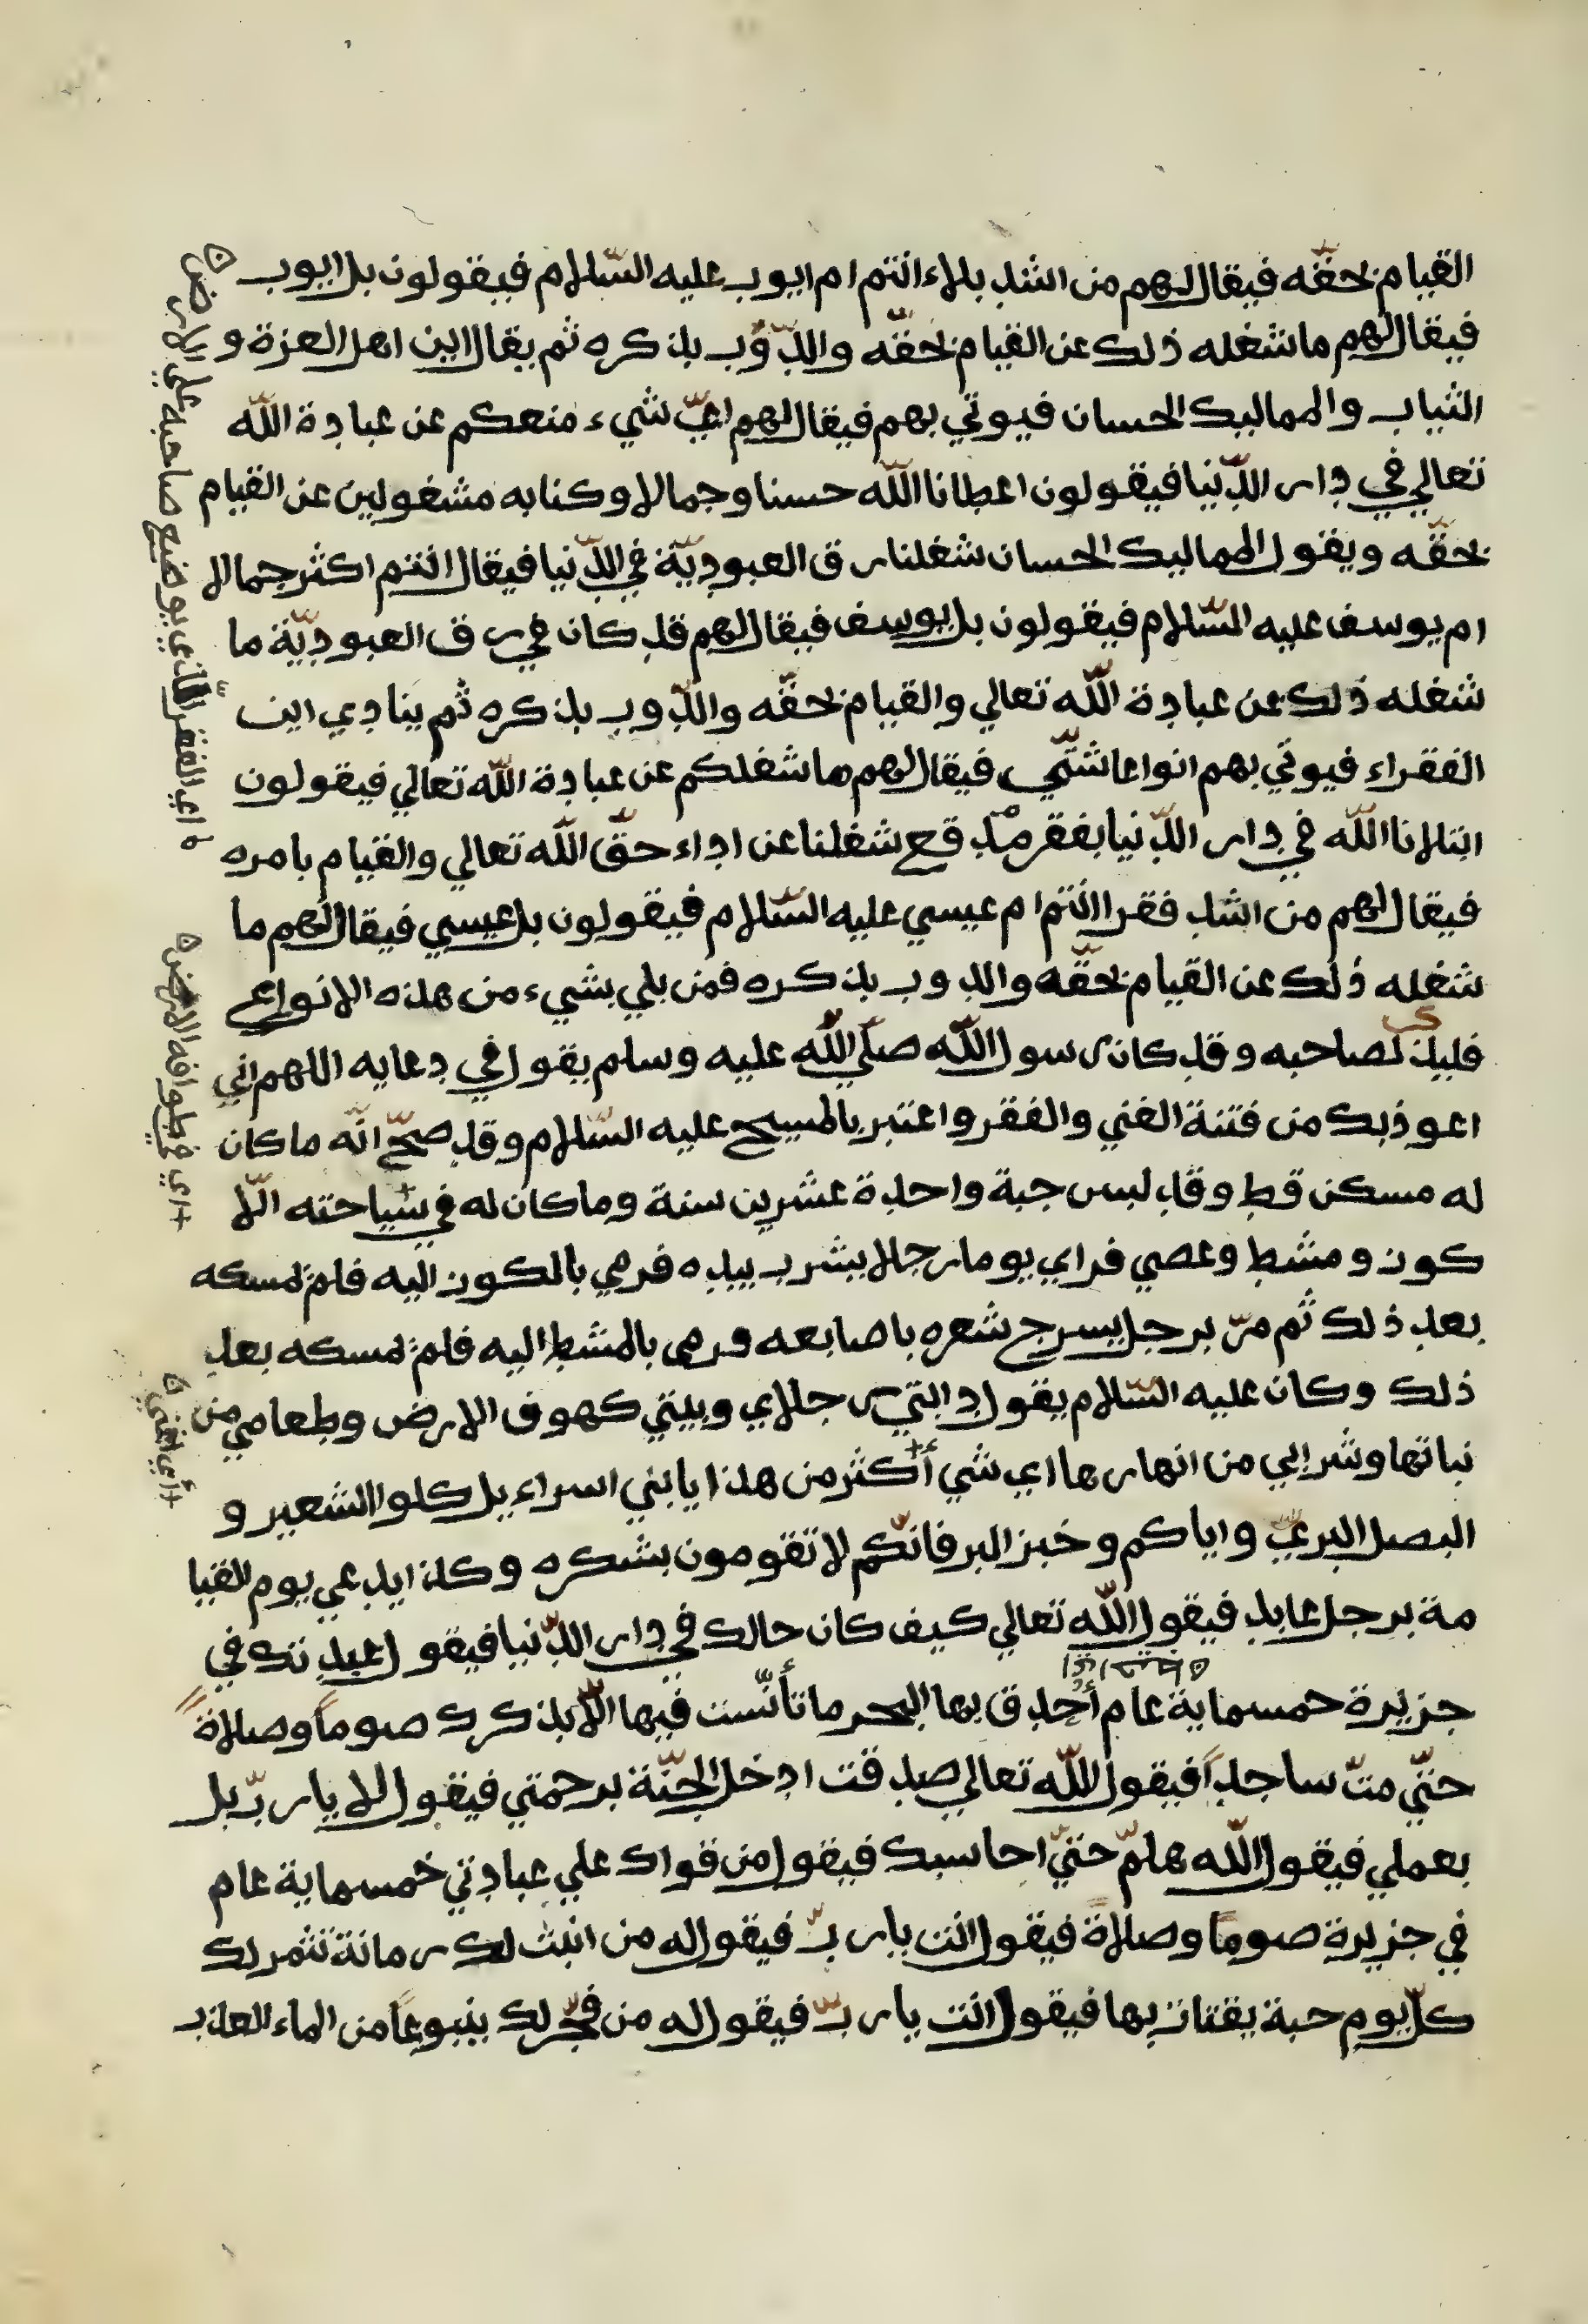 القيام بحقّه فيقال لهم من اشد بلاء انتم ام ايوب عليه السّلام فيقولون بل ايوب
فيقال لهم ما شغله ذلك عن القيام بحقّه والدّوب بذكره ثم يقال اين اهل العزة و
الثياب والمماليك الحسان فيوتي بهم فيقال لهم ايّ شيء منعكم عن عبادة اللّه
تعالي في دار الدّنيا فيقولون اعطانا اللّه حسنا وجمالا وكنا به مشغولين عن القيام
بحقّه ويقول المماليك الحسان شغلنا رق العبوديّة في الدّنيا فيقال انتم اكثر جمالا
ام يوسف عليه السّلام فيقولون بل يوسف فيقال لهم قد كان في رق العبوديّة ما
شغله ذلك عن عبادة اللّه تعالي والقيام بحقّه والدّوب بذكره ثم ينادي اين
الفقراء فيوتي بهم انواعا شتّي فيقال لهم ما شغلكم عن عبادة اللّه تعالي فيقولون
ابتلانا اللّه في دار الدّنيا بفقر مدقع شغلنا عن اداء حقّ اللّه تعالي والقيام بامره
فيقال لهم من اشد فقرا انتم ام عيسي عليه السّلام فيقولون بل عيسي فيقال لهم ما
شغله ذلك عن القيام بحقّه والدوب بذكره فمن بلي بشيء من هذه الانواع
فليذكر صاحبه وقد كان رسول اللّه صلّي اللّه عليه وسلم يقول في دعايه اللهم اني
اعوذ بك من فتنة الغني والفقر واعتبر بالمسيح عليه السّلام وقد صحّ انّه ما كان
له مسكن قط وقد لبس جبة واحدة عشرين سنة وما كان له في سياحته الّا
كوز ومشط وعصي فراي يوما رجلا يشرب بيده فرمي بالكوز اليه فلم يمسكه
بعد ذلك ثم مرّ برجل يسرح شعره باصابعه ورمي بالمشط اليه فلم يمسكه بعد
ذلك وكان عليه السّلام يقول دابتي رجلاي وبيتي كهوف الارض وطعامي من
نباتها وشرابي من انهارها اي شي أكثر من هذا يا بني اسراءيل كلوا الشعير و
البصل البريّ واياكم وخبز البر فانّكم لا تقومون بشكره وكذا يدعي يوم القيا
مة برجل عابد فيقول اللّه تعالي كيف كان حالك في دار الدّنيا فيقول عبدتك في
جزيرة خمسماية عام أحدق بها البحر ما تأنّست فيها الّا بذكرك صوماً وصلاةً
حتّي متّ ساجداً فيقول اللّه تعالي صدقت ادخل الجنّة برحمتي فيقول لا يا ربّ بل
بعملي فيقول اللّه هلمّ حتيّ احاسبك فيقول من قواك علي عبادتي خمسماية عام
في جزيرة صوماً وصلاةً فيقول انت يا ربّ فيقول له من انبت لك رمانة تثمر لك
كلّ يوم حبة يقتات بها فيقول انت يا ربّ فيقول له من فجّر لك ينبوعاً من الماء العذب
اي الفقر الّذي يوضع صاحبه علي الارض
اي في طوافه الارض
أي اغني